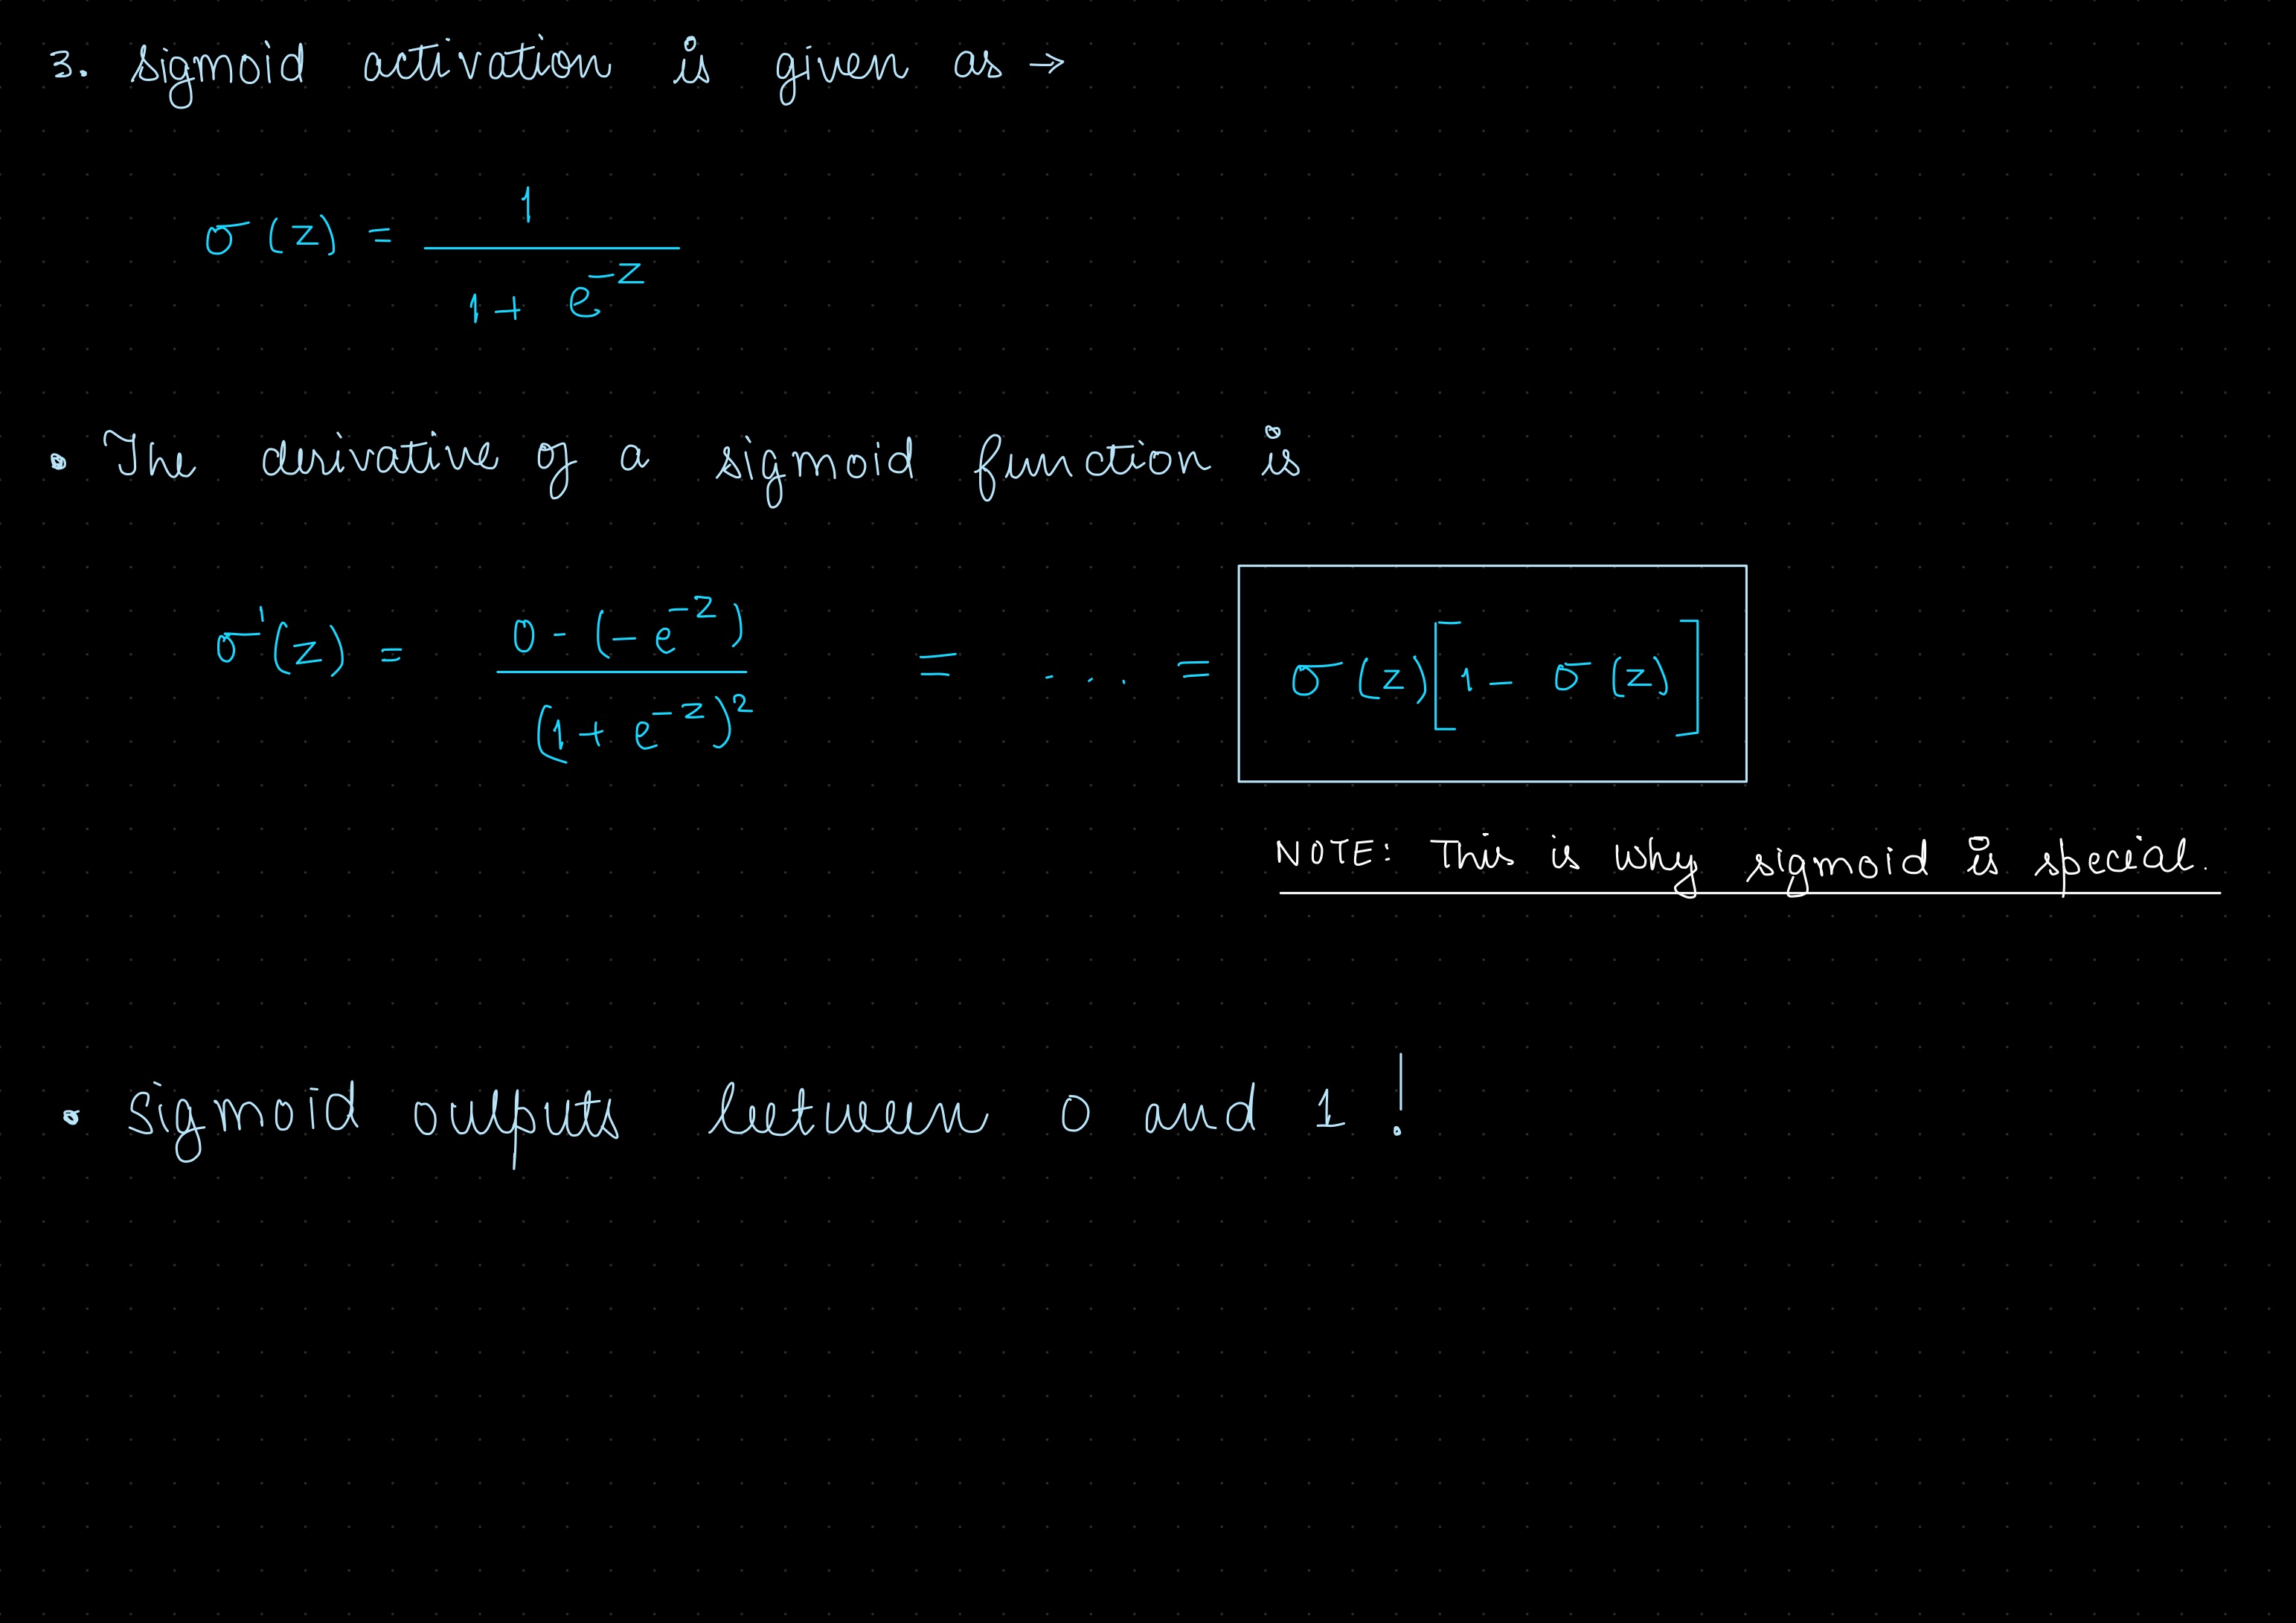 3. Sigmoid activation is given as →
σ(z) = 1 / (1 + e^{-z})
• The derivative of a sigmoid function is
σ'(z) = (0 - (-e^{-z})) / (1 + e^{-z})^2 = .... = σ(z)[1 - σ(z)]
NOTE: This is why sigmoid is special.
• Sigmoid outputs between 0 and 1 !